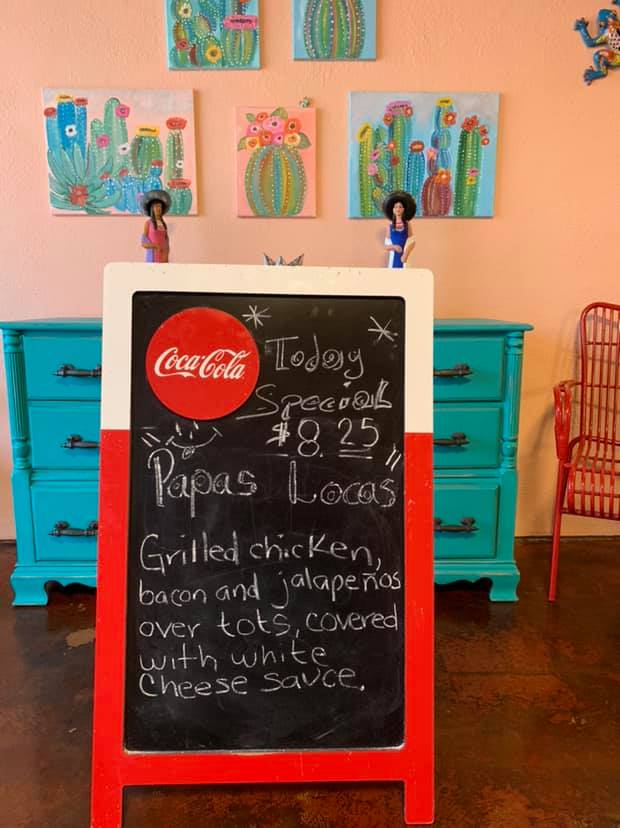 Coca-Cola
Today
Special
$8.25
"Papas Locas"
Grilled chicken,
bacon and jalapeños
over tots, covered
with white
Cheese sauce.